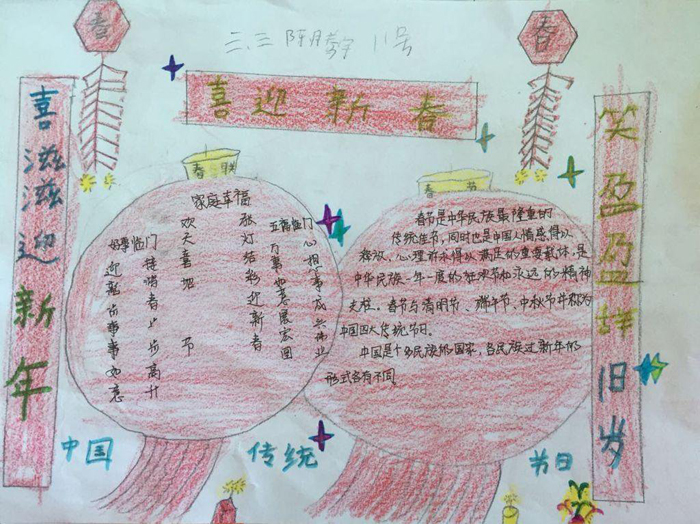 春
春
三.三 陈 11号
喜迎新春
喜滋滋迎新年
笑盈盈辞旧岁
春联
家庭幸福
张灯结彩迎新春
欢天喜地 节
五福临门
心想事成兴伟业
万事如意展宏图
好事临门
步高升
迎新 事事如意
春节
春节是中华民族最隆重的
传统佳节，同时也是中国人情感得以
释放、心理诉求得以满足的重要载体，是
中华民族一年一度的狂欢节和永远的精神
支柱。春节与清明节、端午节、中秋节并称为
中国四大传统节日。
中国是个多民族的国家，各民族过新年的
形式各有不同
中国 传统 节日